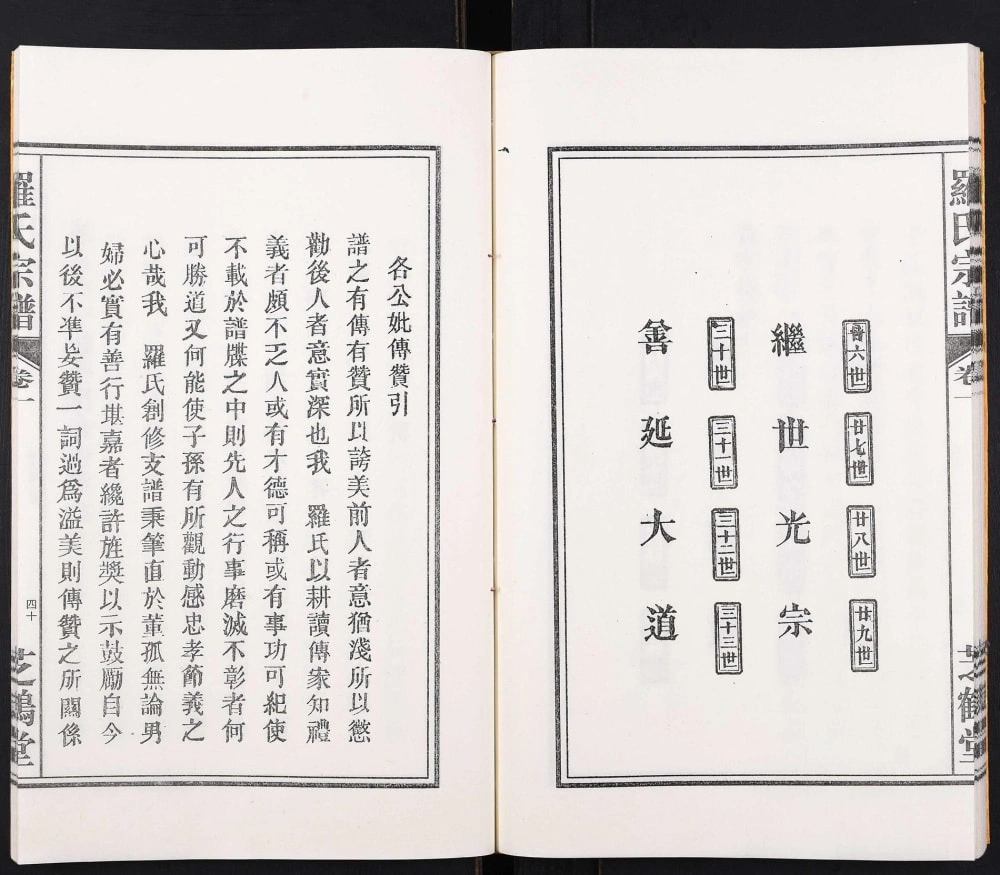 羅氏宗譜
卷一
芝鶴堂
廿六世 廿七世 廿八世 廿九世
繼世光宗
三十世 三十一世 三十二世 三十三世
善延大道
各公妣傳贊引
譜之有傳有贊所以誇美前人者意猶淺所以懲
勸後人者意實深也我 羅氏以耕讀傳家知禮
義者頗不乏人或有才德可稱或有事功可紀使
不載於譜牒之中則先人之行事磨滅不彰者何
可勝道又何能使子孫有所觀動感忠孝節義之
心哉我 羅氏創修支譜秉筆直於董孤無論男
婦必實有善行堪嘉者纔許旌獎以示鼓勵自今
以後不準妄贊一詞過爲溢美則傳贊之所關係
羅氏宗譜
卷一
四十
芝鶴堂